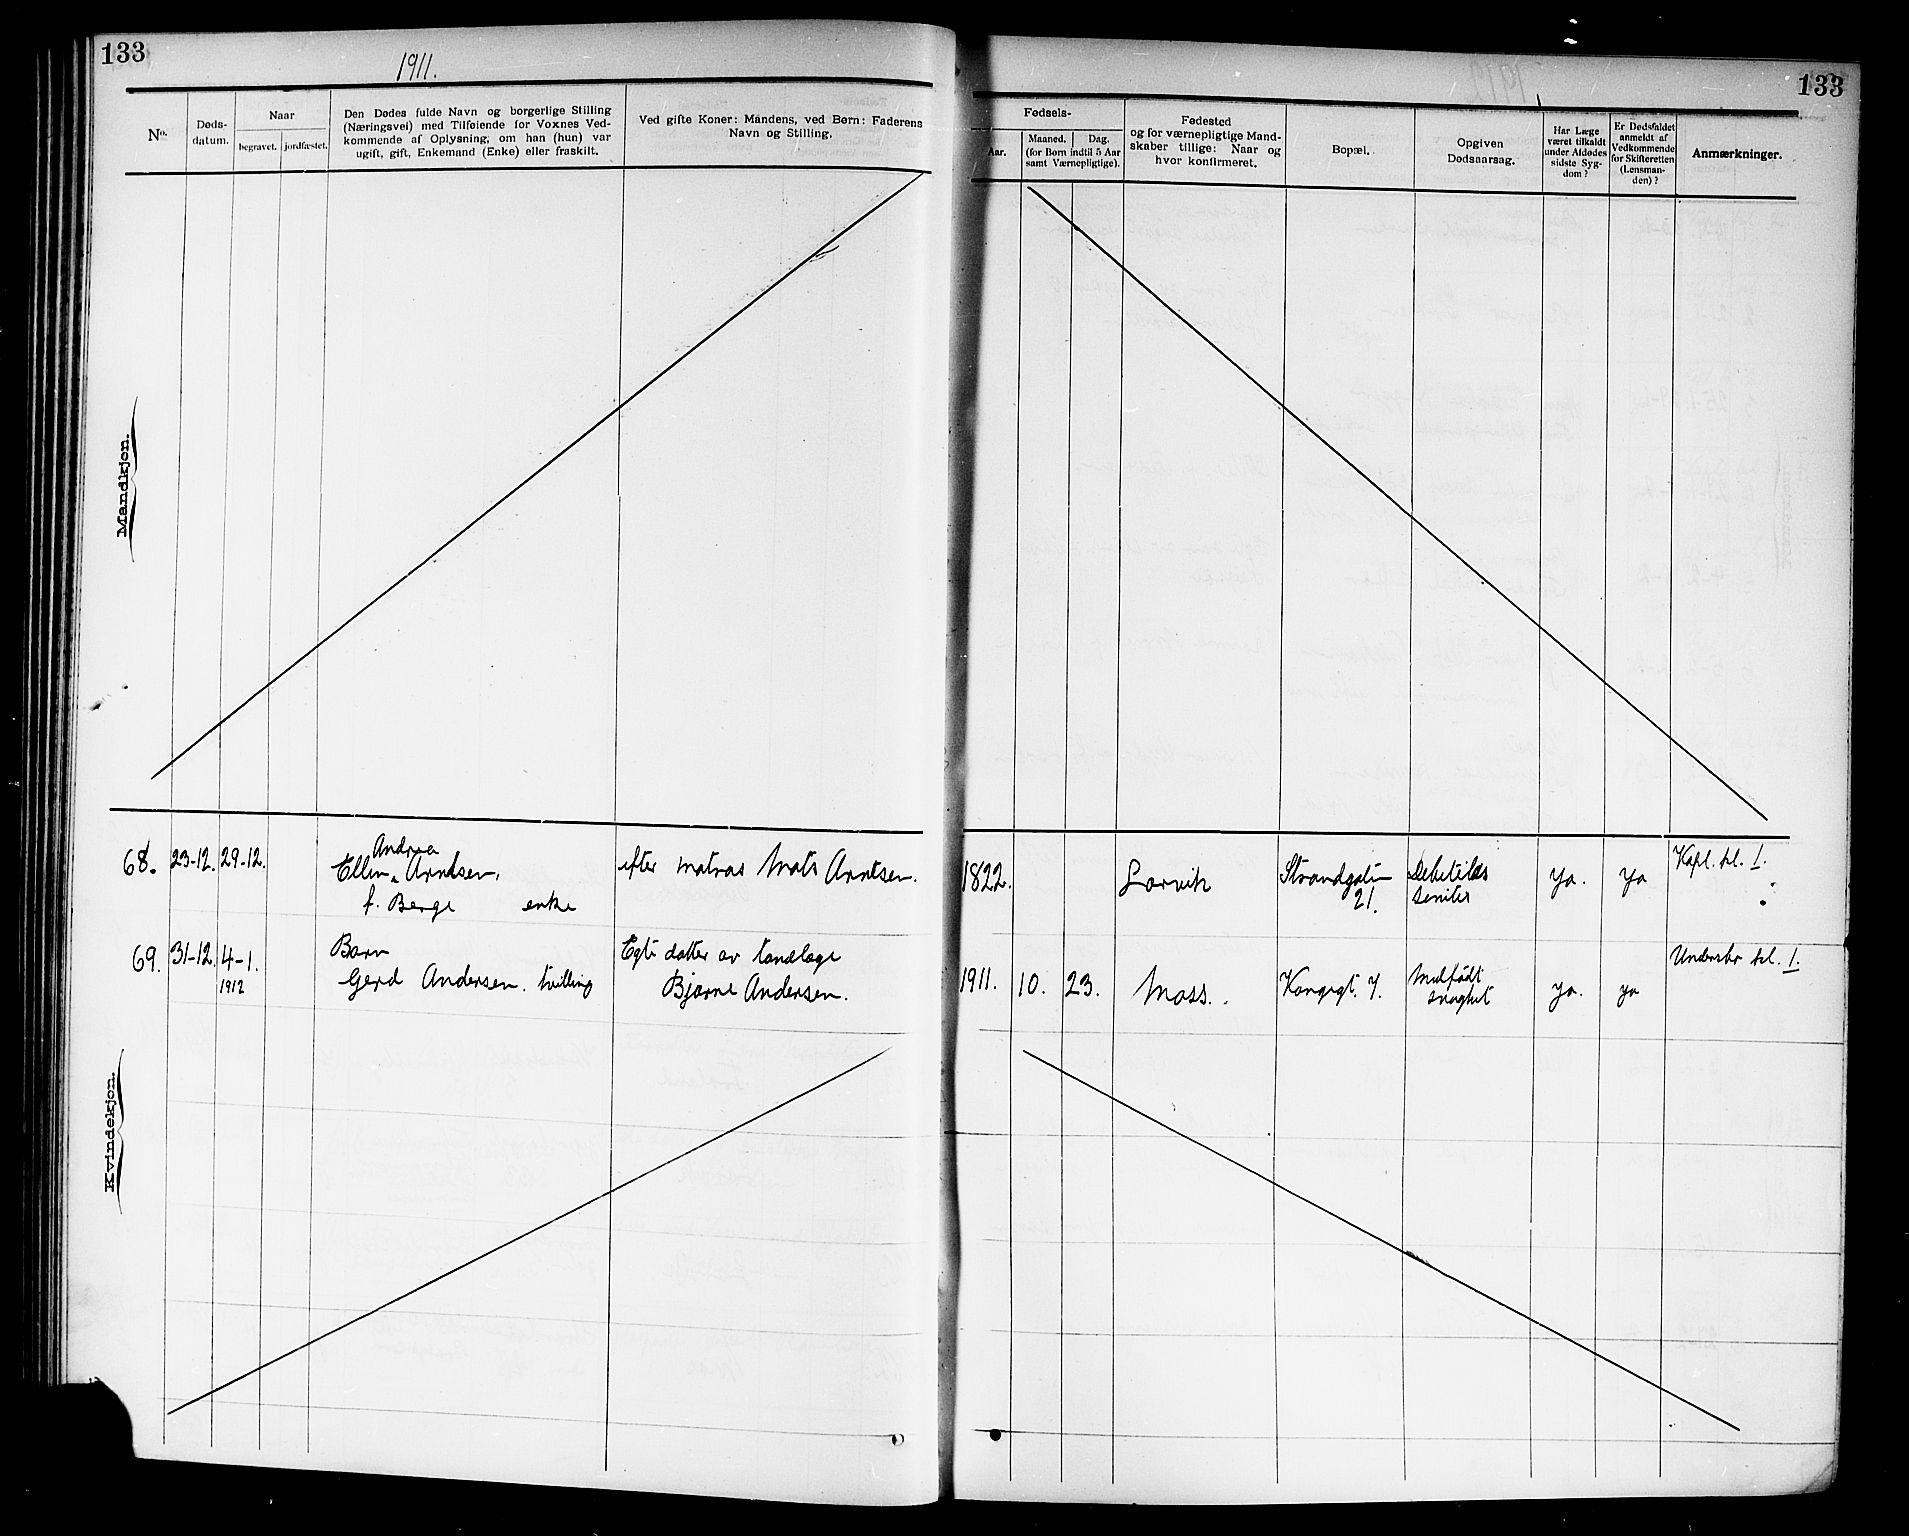 133
1911.
133
No.
Døds-
datum.
Naar
begravet.
jordfæstet.
Den Dødes fulde Navn og borgerlige Stilling
(Næringsvei) med Tilføiende for Voxnes Ved-
kommende af Oplysning, om han (hun) var
ugift, gift, Enkemand (Enke) eller fraskilt.
Ved gifte Koner: Mandens, ved Børn: Faderens
Navn og Stilling.
Fødsels-
Aar.
Maaned.
Dag.
(for Børn indtil 5 Aar
samt Værnepligtige).
Fødested
og for værnepligtige Mand-
skaber tillige: Naar og
hvor konfirmeret.
Bopæl.
Opgiven
Dødsaarsag.
Har Læge
været tilkaldt
under Afdødes
sidste Syg-
dom?
Er Dødsfaldet
anmeldt af
Vedkommende
for Skifteretten
(Lensman-
den)?
Anmærkninger.
Mandkjøn.
68. 23-12. 29-12.
Andrea
Ellen Arntsen,
f. Berge enke
efter matros Mats Arntsen.
1822.
Larvik
Strandgaten
21.
Debilitas
senilis
ja.
ja
Kapl. kl. 1.
69. 31-12. 4-1.
1912
Barn
Gerd Andersen. tvilling
Egte datter av tandlæge
Bjarne Andersen.
1911. 10. 23.
Moss.
Kongegt. 7.
Medfødt
svaghet
ja.
ja
Underskr kl. 1.
Kvindekjøn.